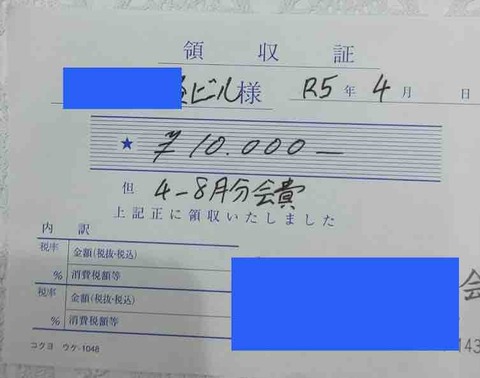 領収証
ビル様 R5年4月 日
★ ¥10.000-
但 4-8月分会費
上記正に領収いたしました
内訳
税率 金額(税抜・税込)
% 消費税額等
税率 金額(税抜・税込)
% 消費税額等
会
コクヨ ウケ-1048
143